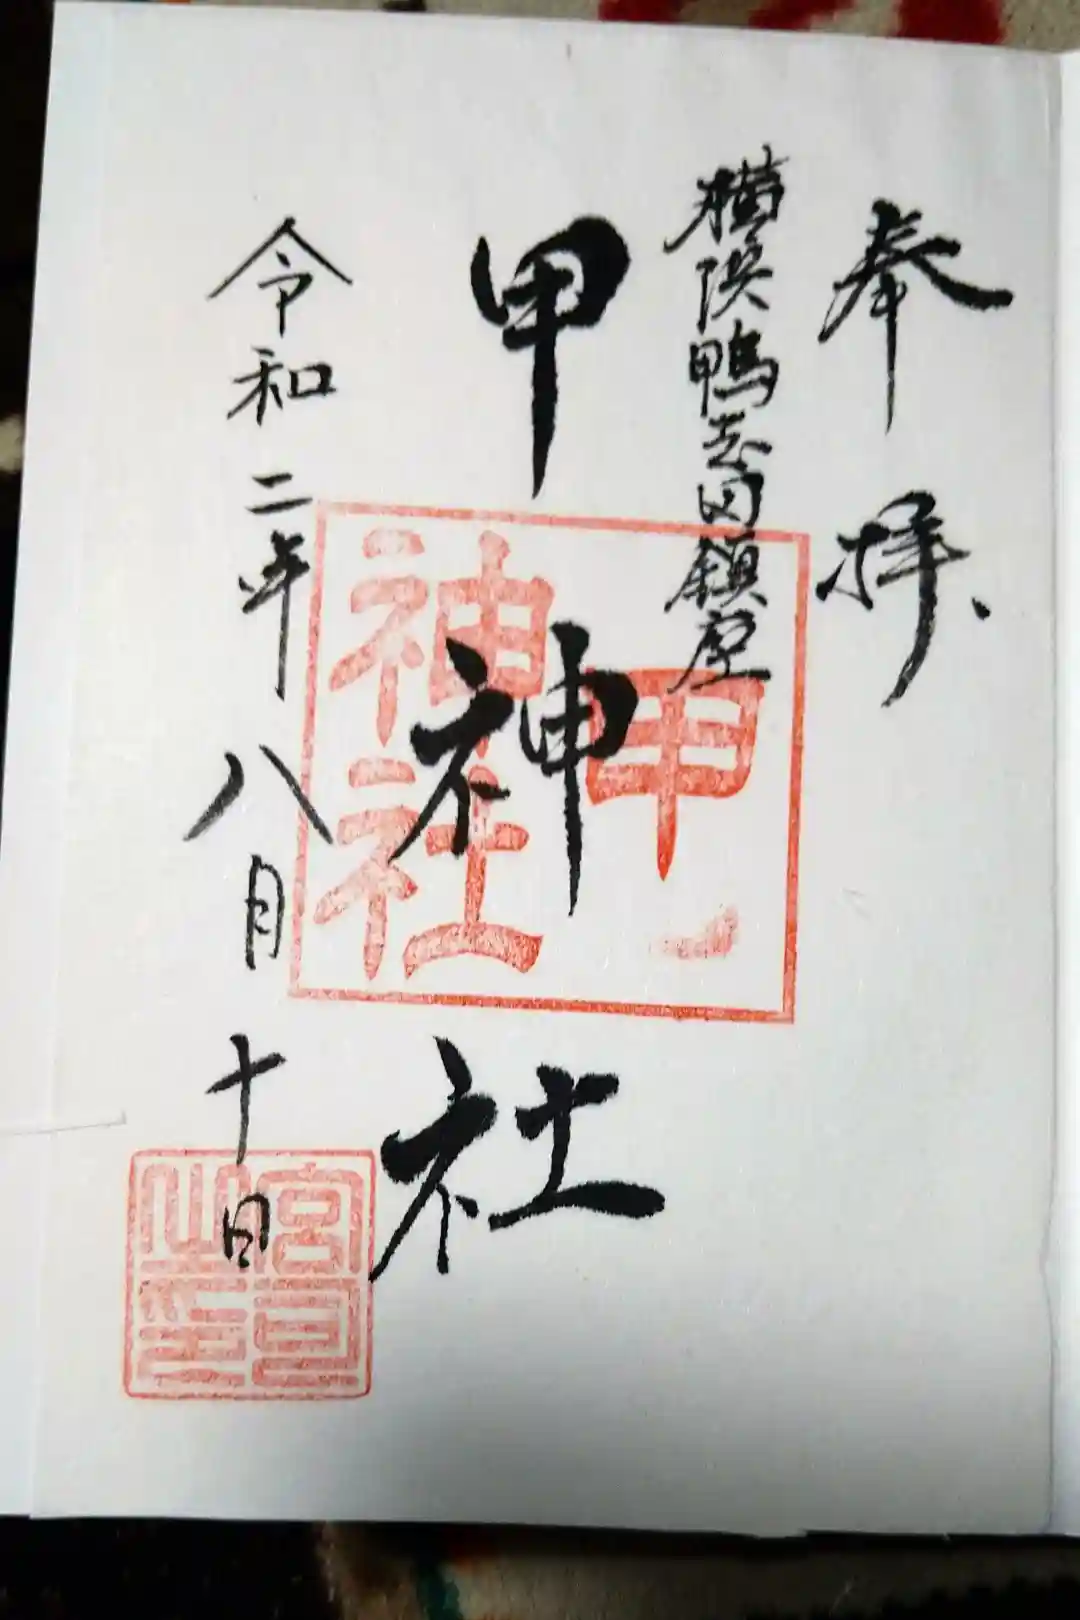 奉拝
横浜鴨志田鎮座
甲神社
甲
神社
令和二年八月十日
宮司
之印